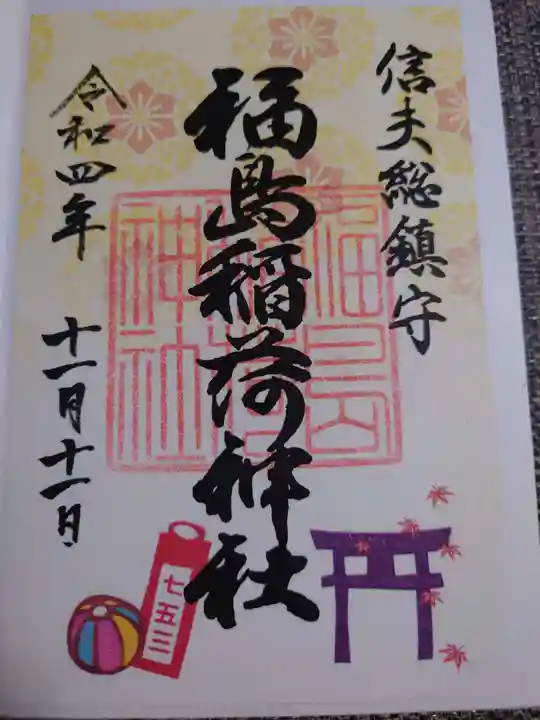 信夫総鎮守
福島稲荷神社
令和四年
十一月十一日
福島
稲荷
神社
七五三